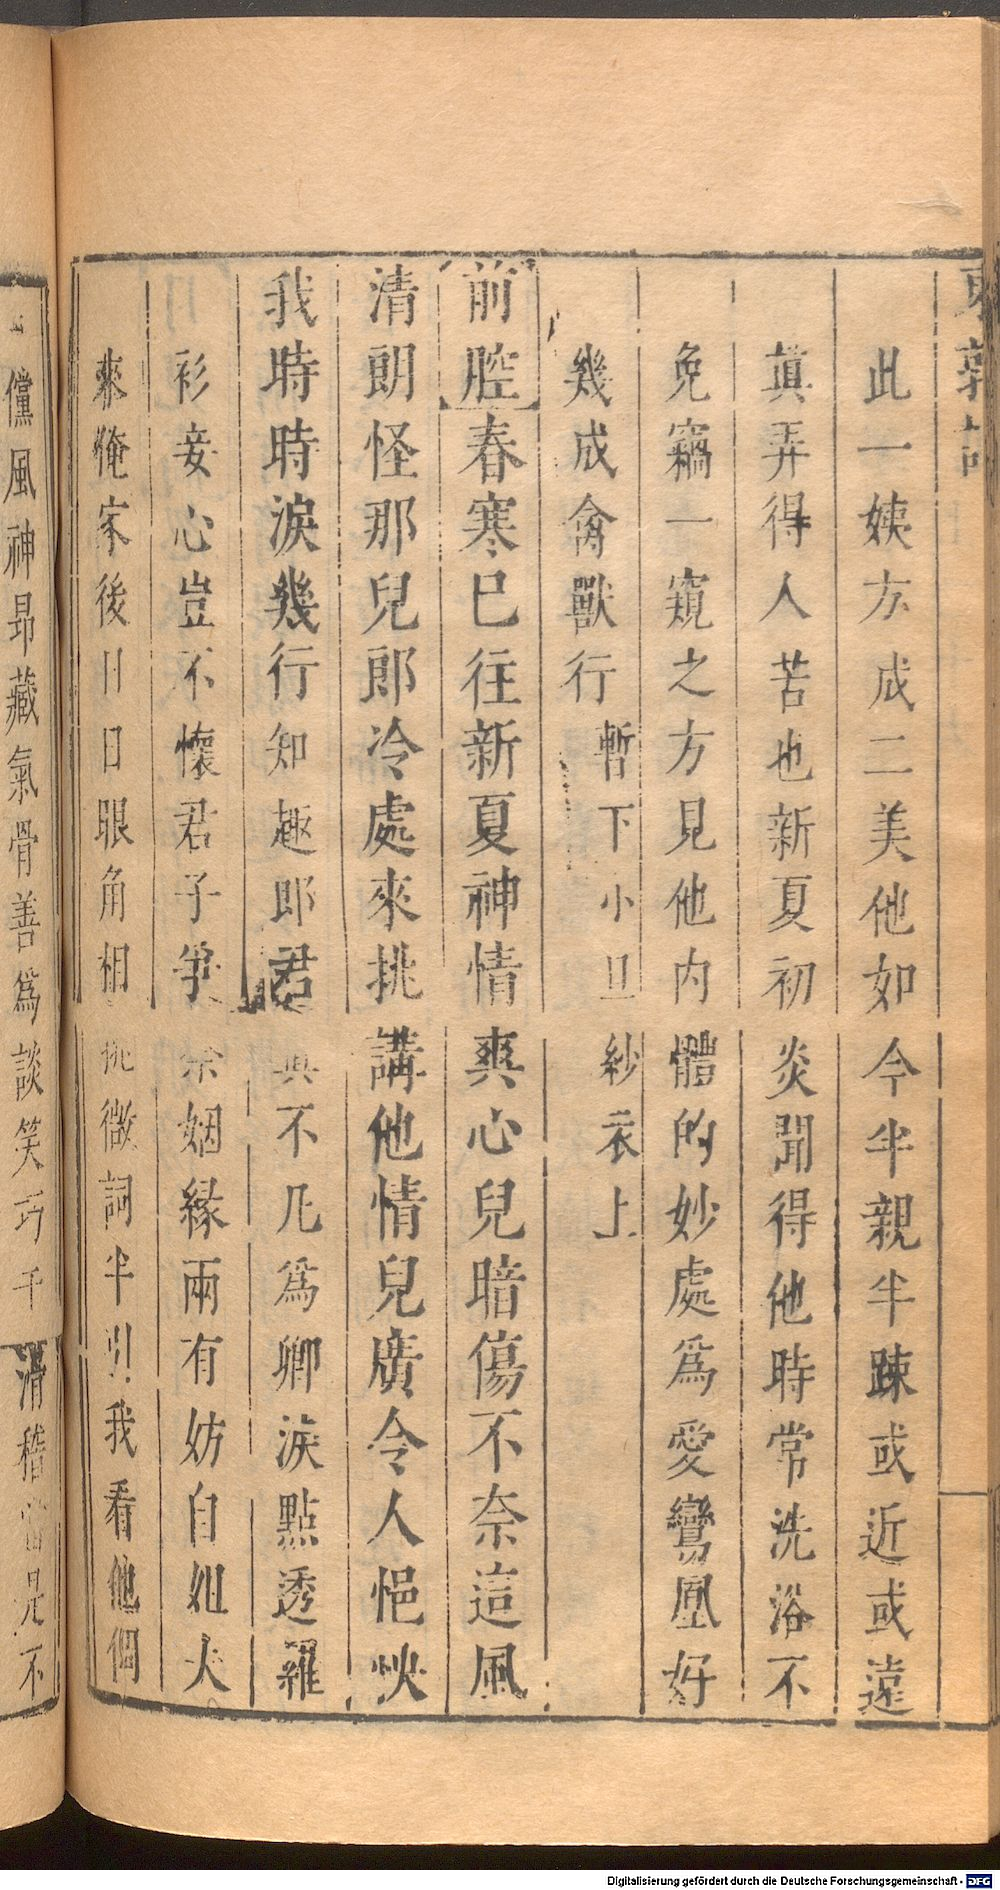 東郭記
此一姨方成二美他如今半親半踈或近或遠
真弄得人苦也新夏初炎聞得他時常洗浴不
免竊一窺之方見他内體的妙處爲愛鸞凰好
幾成禽獸行 暫下 小旦紗衣上
前腔春寒已往新夏神情爽心兒暗傷不奈這風
清朗怪那兒郎冷處來挑講他情兒廣令人悒怏
我時時淚幾行知趣郎君 不凡爲卿淚點透羅
衫妾心豈不懷君子爭奈姻緣兩有妨自姐夫
來俺家後日日眼角相挑微詞半引我看他個
儻風神昻藏氣骨善爲談笑巧于滑稽 不
Digitalisierung gefördert durch die Deutsche Forschungsgemeinschaft - DFG